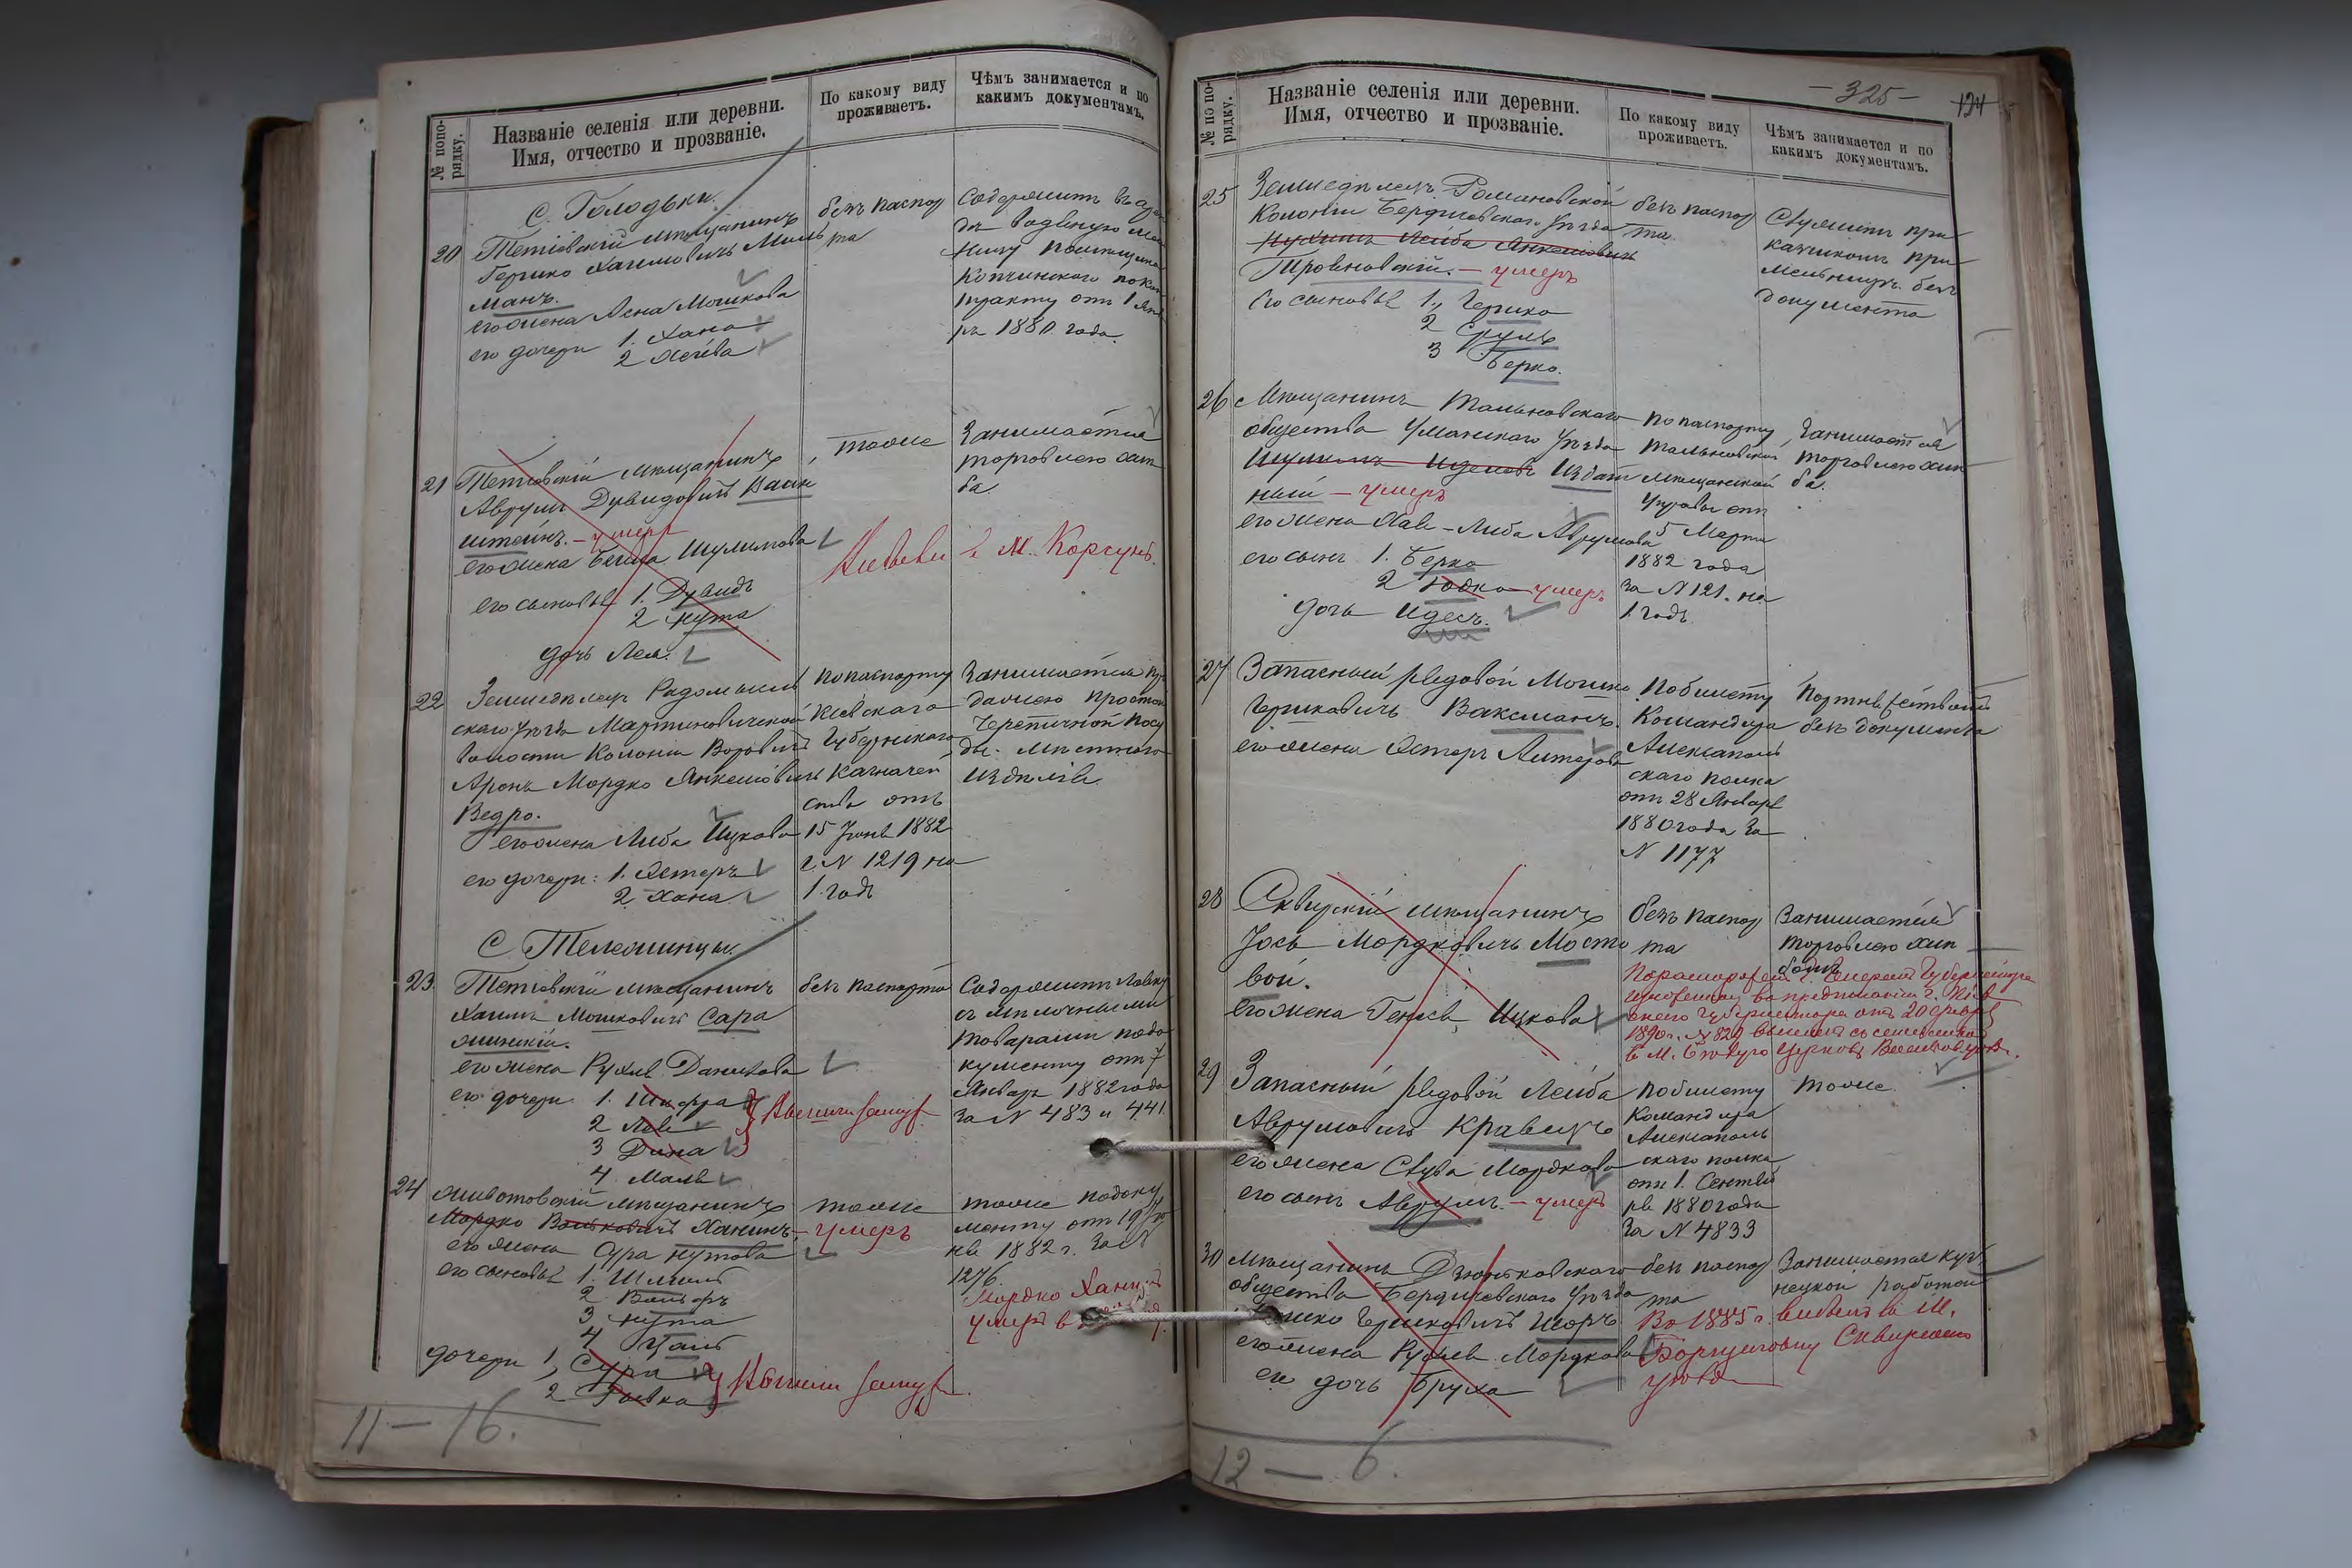 № по по-
рядку.
Названіе селенія или деревни.
Имя, отчество и прозваніе.
По какому виду
проживаетъ.
Чѣмъ занимается и по
какимъ документамъ.
С. Голодьки.
20
Тетіевскій мѣщанинъ
Гершко Хаимовичъ Миль
манъ.
его жена Мошкова
его дочери 1. Хана
2
безъ паспор
та
Содержитъ въ арен
дѣ водяную мель
ницу помѣщика
Копчинского по кон
тракту отъ 1 Янв
ря 1880 года.
21
Тетіевскій мѣщанинъ
Аврумъ Дувидовичъ Вайн
штейнъ. - умеръ
его жена Бейла Шулимова
его сыновья 1. Дувидъ
2 Нута
дочь Лея.
тоже
Занимается
торговлею хлѣ
ба.
Выбыли в М. Корсунь.
22
Земледѣлец Радомысль
скаго уѣзда Мартиновичской
волости Колоніи Воровичъ
Аронъ Мордко Янкелевичъ
Ведро.
его жена Либа Ицкова
его дочери: 1. Эстеръ
2. Хана
по паспорту
Кіевскаго
Губернскаго
Казначей
ства отъ
15 Іюня 1882
г. N 1219 на
1. годъ
Занимается про
дажею простой
Черепичной посу
ды. мѣстнаго
издѣлія
С. Тележинцы.
23
Тетіевскій мѣщанинъ
Хаимъ Мошковичъ Сара
жинскій.
его жена Рухля Данилова
его дочери 1. Шифра
2 Лея
3 Дина
4 Маля
Вышли замуж.
безъ паспорта
Содержитъ Лавку
съ мѣлочными
товарами по до
кументу отъ 7
Января 1882 года
за N 483 и 441.
24
Животовскій мѣщанинъ
Мордко Вольковичъ Ханинъ - умеръ
его жена Сура Нутова
его сыновья 1. Шмиль
2. Вольфъ
3 Нута
4
дочери 1, Сура
2 Ривка
Вышли замуж.
тоже
тоже по доку
менту отъ 19 Ію
ня 1882 г. за N
1276.
Мордко Ханинъ
умеръ в
11 - 16.
- 325 -
124
№ по по-
рядку.
Названіе селенія или деревни.
Имя, отчество и прозваніе.
По какому виду
проживаетъ.
Чѣмъ занимается и по
какимъ документамъ.
25
Земледѣлецъ Романовской
Колоніи Бердичевскаго уѣзда
Лейба Янкелевичъ
Трояновскій. - умеръ
Его сыновья 1, Гершко
2 Сруль
3 Берко.
безъ паспор
та.
Служитъ при
кащикомъ при
мельницѣ безъ
документа
26
Мѣщанинъ Тальновскаго
общества Уманскаго уѣзда
Издат
ный - умеръ
его жена Хая-Либа Аврумова
его сынъ 1. Берко
2 Іодко - умеръ
дочь Идесъ.
по паспорту
Тальновской
мѣщанской
Управы отъ
5 Марта
1882 года
за N 121. на
1. годъ.
Занимается
торговлею хлѣ
ба.
27
Запасный рядовой Мошко
Гершковичъ Ваксманъ.
его жена Эстеръ Алтерова
По билету
Командира
Алексаполь
скаго полка
отъ 28 Января
1880 года за
N 1177
Портняжествомъ
безъ документа
28
Сквирскій мѣщанинъ
Іось Мордковичъ Мосто
вой.
его жена Геня Ицкова
безъ паспор
та
Занимается
торговлею хлѣ
бомъ
1890 г. N 820 выселенъ съ семействомъ
в М. Бѣлую Церковь Васильков. уѣзда.
29
Запасный рядовой Лейба
Аврумовичъ Кравецъ
его жена Слува Мордкова
его сынъ Аврумъ. - умеръ
по билету
Командира
Алексаполь
скаго полка
отъ 1. Сентяб
ря 1880 года
за N 4833
тоже.
30
Мѣщанинъ Дзюньковскаго
общества Бердичевскаго уѣзда
Гершковичъ Шоръ
его жена Рухля Мордкова
его дочь Бруха
безъ паспор
та
Занимается куз
нецкой работой
Въ 1885 г. выбылъ въ М.
Борщаговку Сквирскаго
уѣзда
12 - 6.